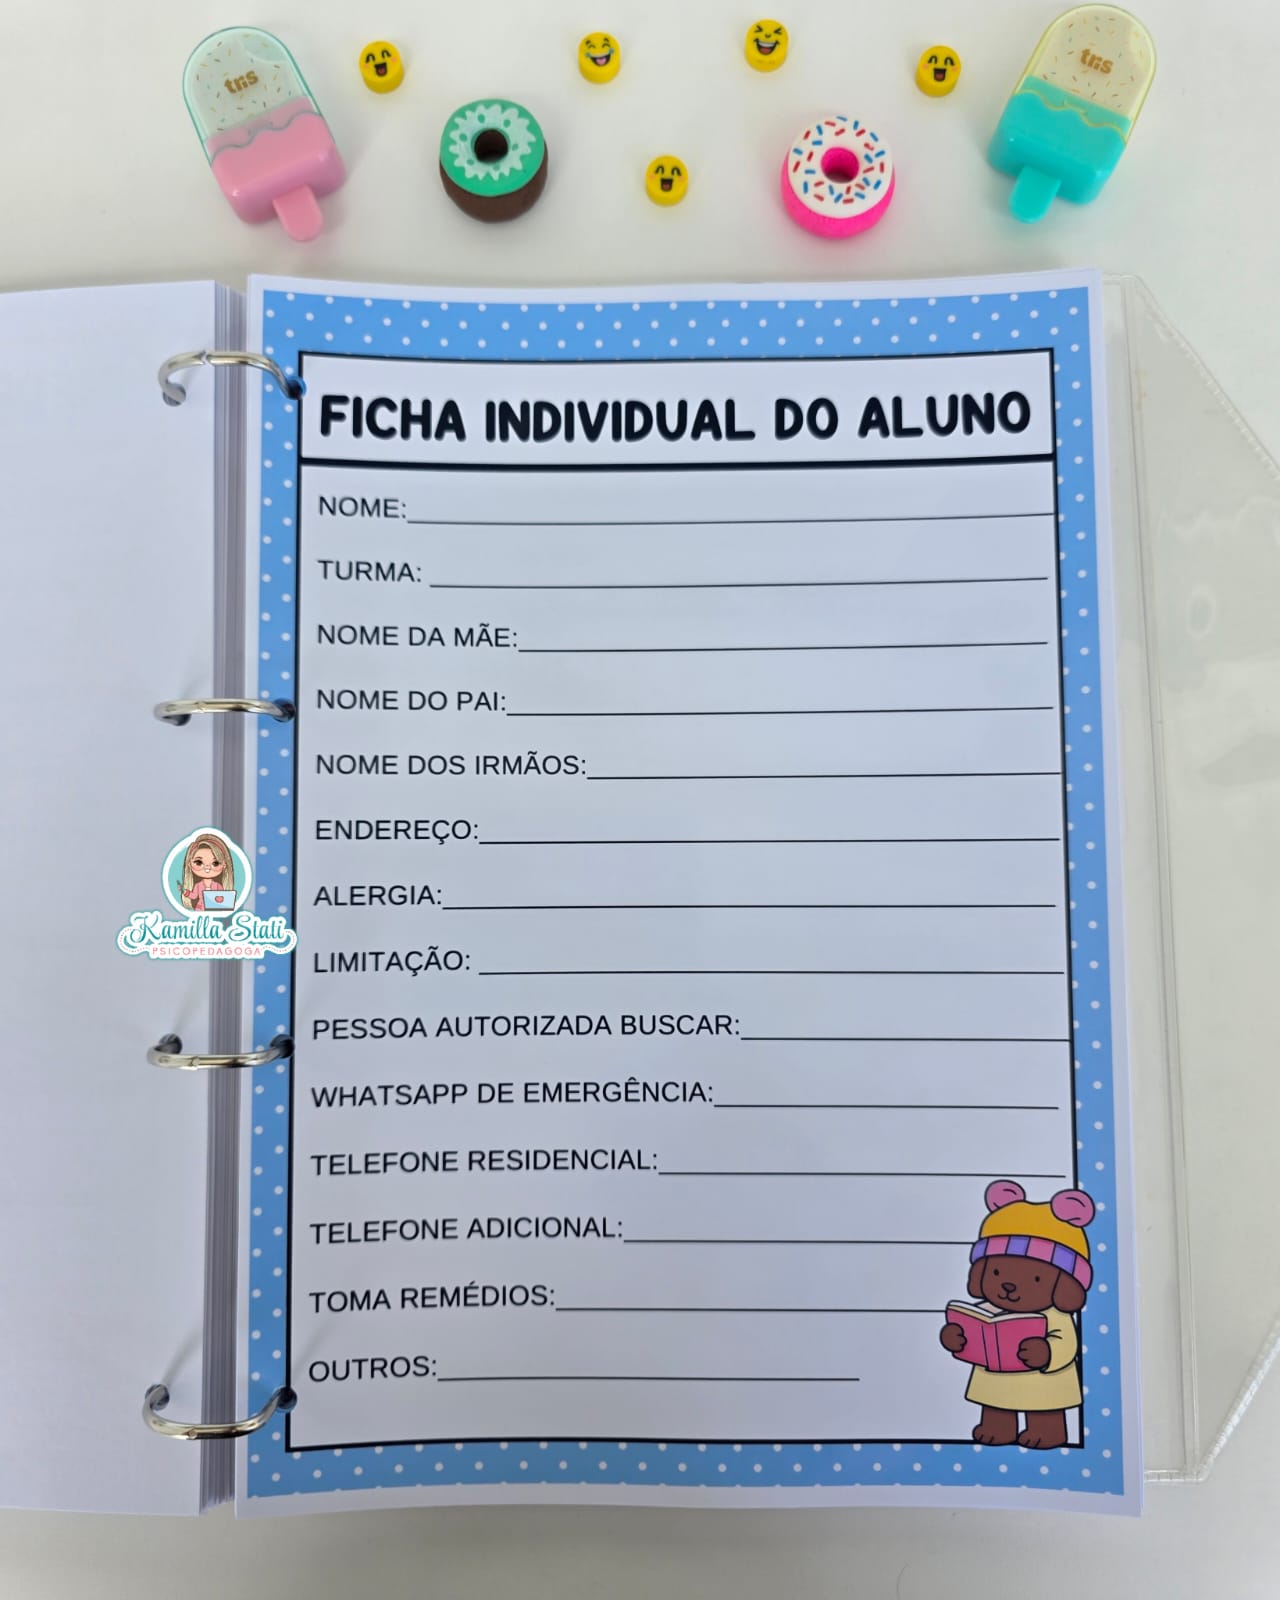 tris
tris
FICHA INDIVIDUAL DO ALUNO
NOME:
TURMA:
NOME DA MÃE:
NOME DO PAI:
NOME DOS IRMÃOS:
ENDEREÇO:
ALERGIA:
LIMITAÇÃO:
PESSOA AUTORIZADA BUSCAR:
WHATSAPP DE EMERGÊNCIA:
TELEFONE RESIDENCIAL:
TELEFONE ADICIONAL:
TOMA REMÉDIOS:
OUTROS:
Kamilla Stati
PSICOPEDAGOGA